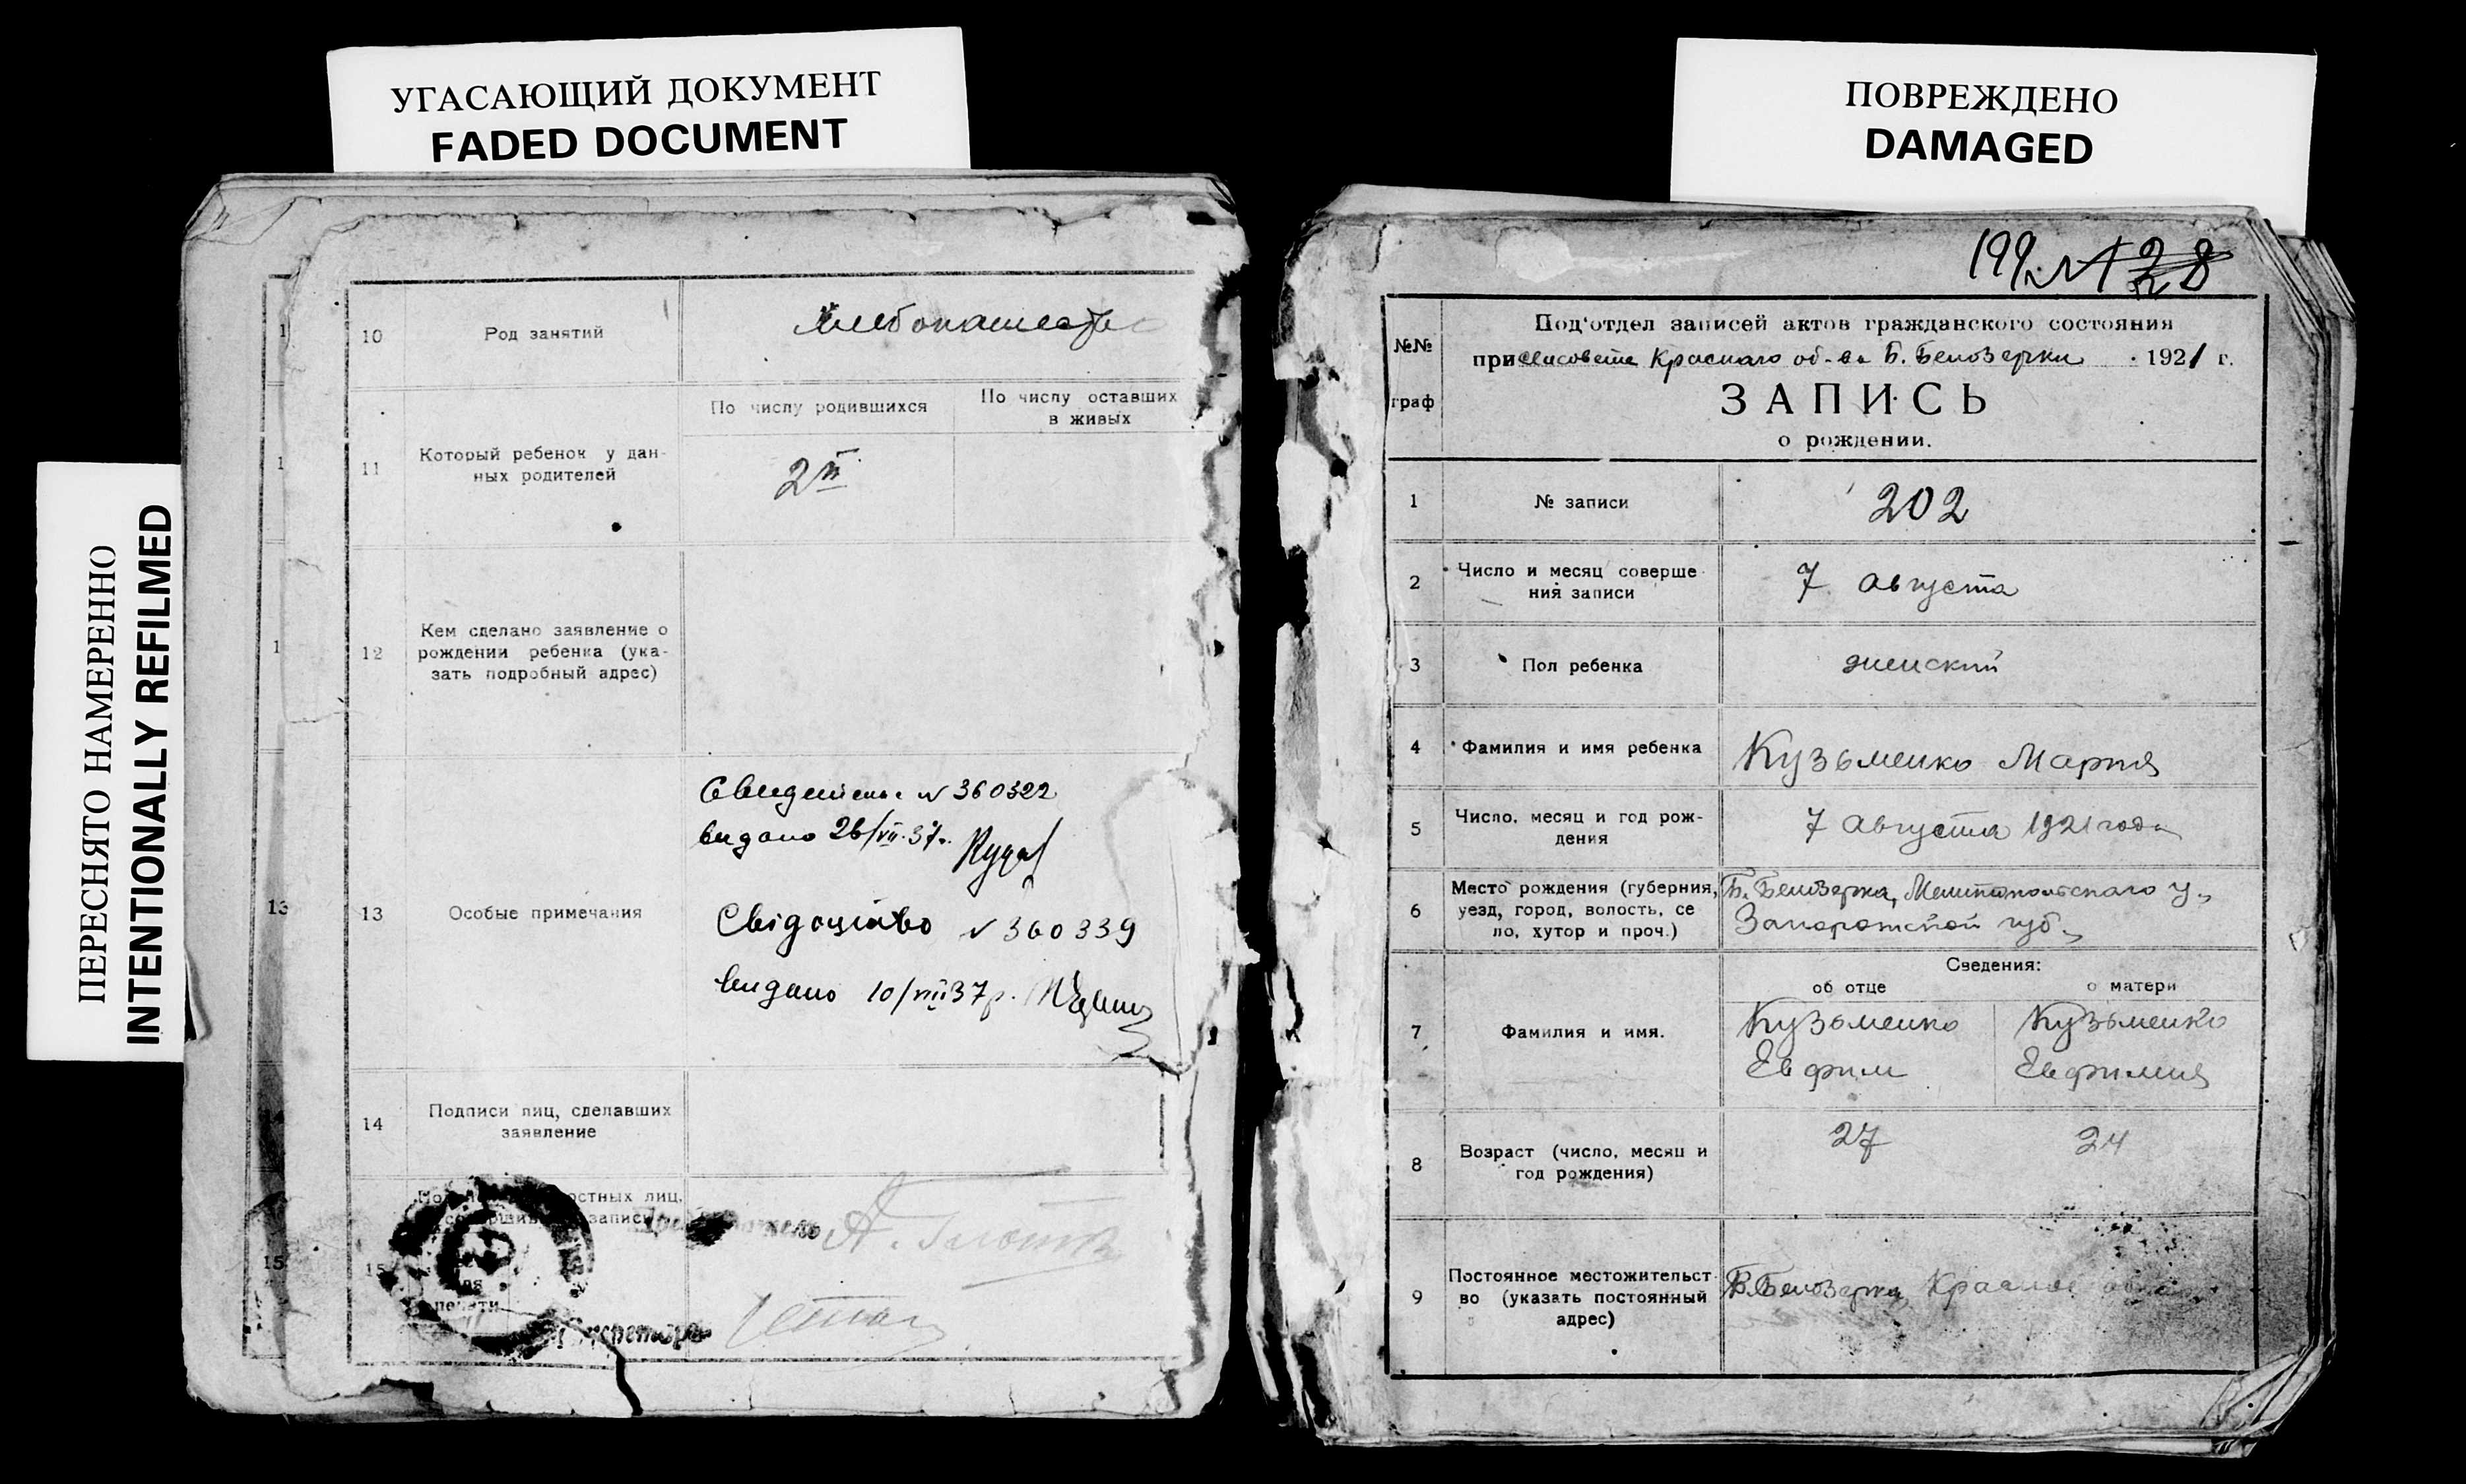 УГАСАЮЩИЙ ДОКУМЕНТ
FADED DOCUMENT
ПЕРЕСНЯТО НАМЕРЕННО
INTENTIONALLY REFILMED
10
Род занятий
Хлебопашество
11
Который ребенок у дан-
ных родителей
По числу родившихся
По числу оставших
в живых
2й
12
Кем сделано заявление о
рождении ребенка (ука-
зать подробный адрес)
13
13
Особые примечания
видано 26/VII.37
Свідоцтво № 360339
видано 10/VIII 37р.
14
Подписи лиц, сделавших
заявление
15
15
остных лиц,
записи
печати
А.
ПОВРЕЖДЕНО
DAMAGED
199. № 28
№№
граф
Под'отдел записей актов гражданского состояния
при сельсовете Краснаго об-ва Б. Белозерки 1921 г.
ЗАПИСЬ
о рождении.
1
№ записи
202
2
Число и месяц соверше
ния записи
7 августа
3
Пол ребенка
женский
4
Фамилия и имя ребенка
Кузьменко Мария
5
Число, месяц и год рож-
дения
7 Августа 1921 года
6
Место рождения (губерния,
уезд, город, волость, се
ло, хутор и проч.)
Б. Белозерка, Мелитопольскаго у.,
Запорожской губ.
Сведения:
об отце
о матери
7
Фамилия и имя.
Кузьменко
Евфим
Кузьменко
Евфимия
8
Возраст (число, месяц и
год рождения)
27
24
9
Постоянное местожительст
во (указать постоянный
адрес)
Б. Белозерка